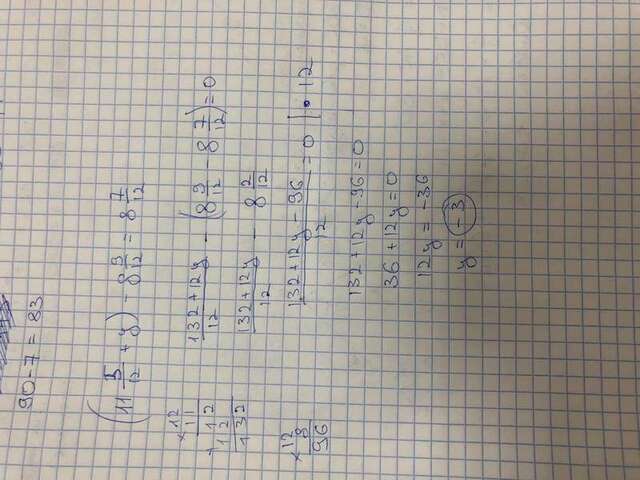 90-7 = 83
(11 5/12 + y) - 8 9/12 = 8 7/12
12
× 11
132 + 12y / 12 - (8 9/12 - 8 7/12) = 0
+ 12
12
132
132 + 12y / 12 - 8 2/12
12
× 8
96
132 + 12y - 96 / 12 = 0 | • 12
132 + 12y - 96 = 0
36 + 12y = 0
12y = -36
y = -3